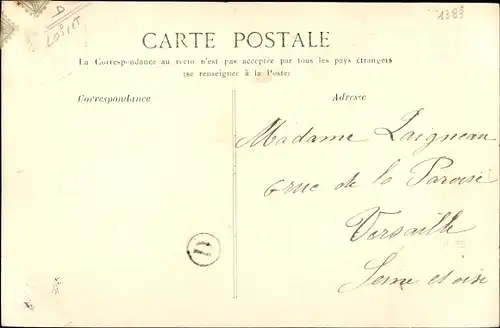 1389
LOIRET
CARTE POSTALE
La Correspondance au recto n'est pas acceptée par tous les pays étrangers
(se renseigner à la Poste)
Correspondance
Adresse
Madame Laigneau
6 rue de la Paroise
Versaille
Seine et oise